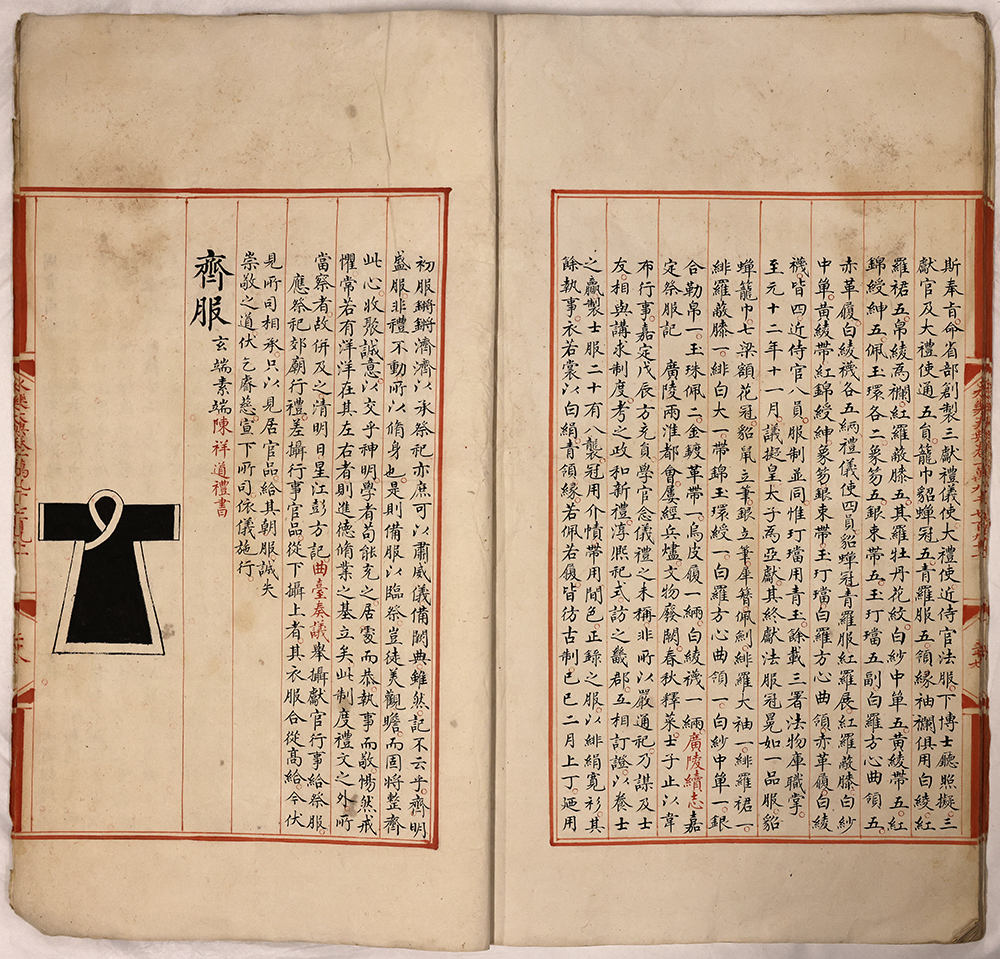 斯奉旨命省部創製三獻禮儀使大禮使近侍官法服下博士廳照擬三
獻官及大禮使通五員籠巾貂蟬冠五青羅服五領緣袖襴俱用白綾紅
羅裙五帛綾為襴紅羅蔽膝五其羅牡丹花紋白紗中單五黃綾帶五紅
錦綬紳五佩玉環各二象笏五銀束帶五玉玎璫五副白羅方心曲領五
赤革履白綾襪各五緉禮儀使四員貂蟬冠青羅服紅羅展紅羅蔽膝白紗
中單黃綾帶紅錦綬紳象笏銀束帶玉玎璫白羅方心曲領赤革履白綾
襪皆四近侍官八員服制並同惟玎璫用青玉餘載三署法物庫職掌
至元十二年十一月議擬皇太子為亞獻其終獻法服冠冕如一品服貂
蟬籠巾七梁額花冠貂鼠立筆銀立筆犀簪佩紃緋羅大袖一緋羅裙一
緋羅蔽膝一緋白大一帶錦玉環綬一白羅方心曲領一白紗中單一銀
合勒帛一玉珠佩二金鍍革帶一烏皮履一緉白綾襪一緉廣陵續志嘉
定祭服記　廣陵兩淮都會屢經兵燼文物廢闕春秋釋菜士子止以韋
布行事嘉定戊辰方充員學官念儀禮之未稱非所以嚴通祀乃謀及士
友相與講求制度考之政和新禮淳熙祀式訪之畿郡互相訂證以養士
之贏製士服二十有八襲冠用介幘帶用間色正錄之服以緋絹寬衫其
餘執事衣若裳以白絹青領緣若佩若履皆彷古制已巳二月上丁廼用
初服鏘鏘濟濟以承祭祀亦庶可以肅威儀備闕典雖然記不云乎齊明
盛服非禮不動所以脩身也是則備服以臨祭豈徒美觀瞻而固將整齊
此心收聚誠意以交乎神明學者苟能充之居處而恭執事而敬惕然戒
懼常若有洋洋在其左右者則進德脩業之基立矣此制度禮文之外所
當察者故併及之清明日星江彭方記曲臺奏議舉攝獻官行事給祭服
應祭祀郊廟行禮差攝行事官品從下攝上者其衣服合從高給今伏
見所司相承只以見居官品給其朝服誠失
崇敬之道伏乞睿慈宣下所司依儀施行
齊服
玄端素端陳祥道禮書
永樂大典卷一萬九千七百九十二